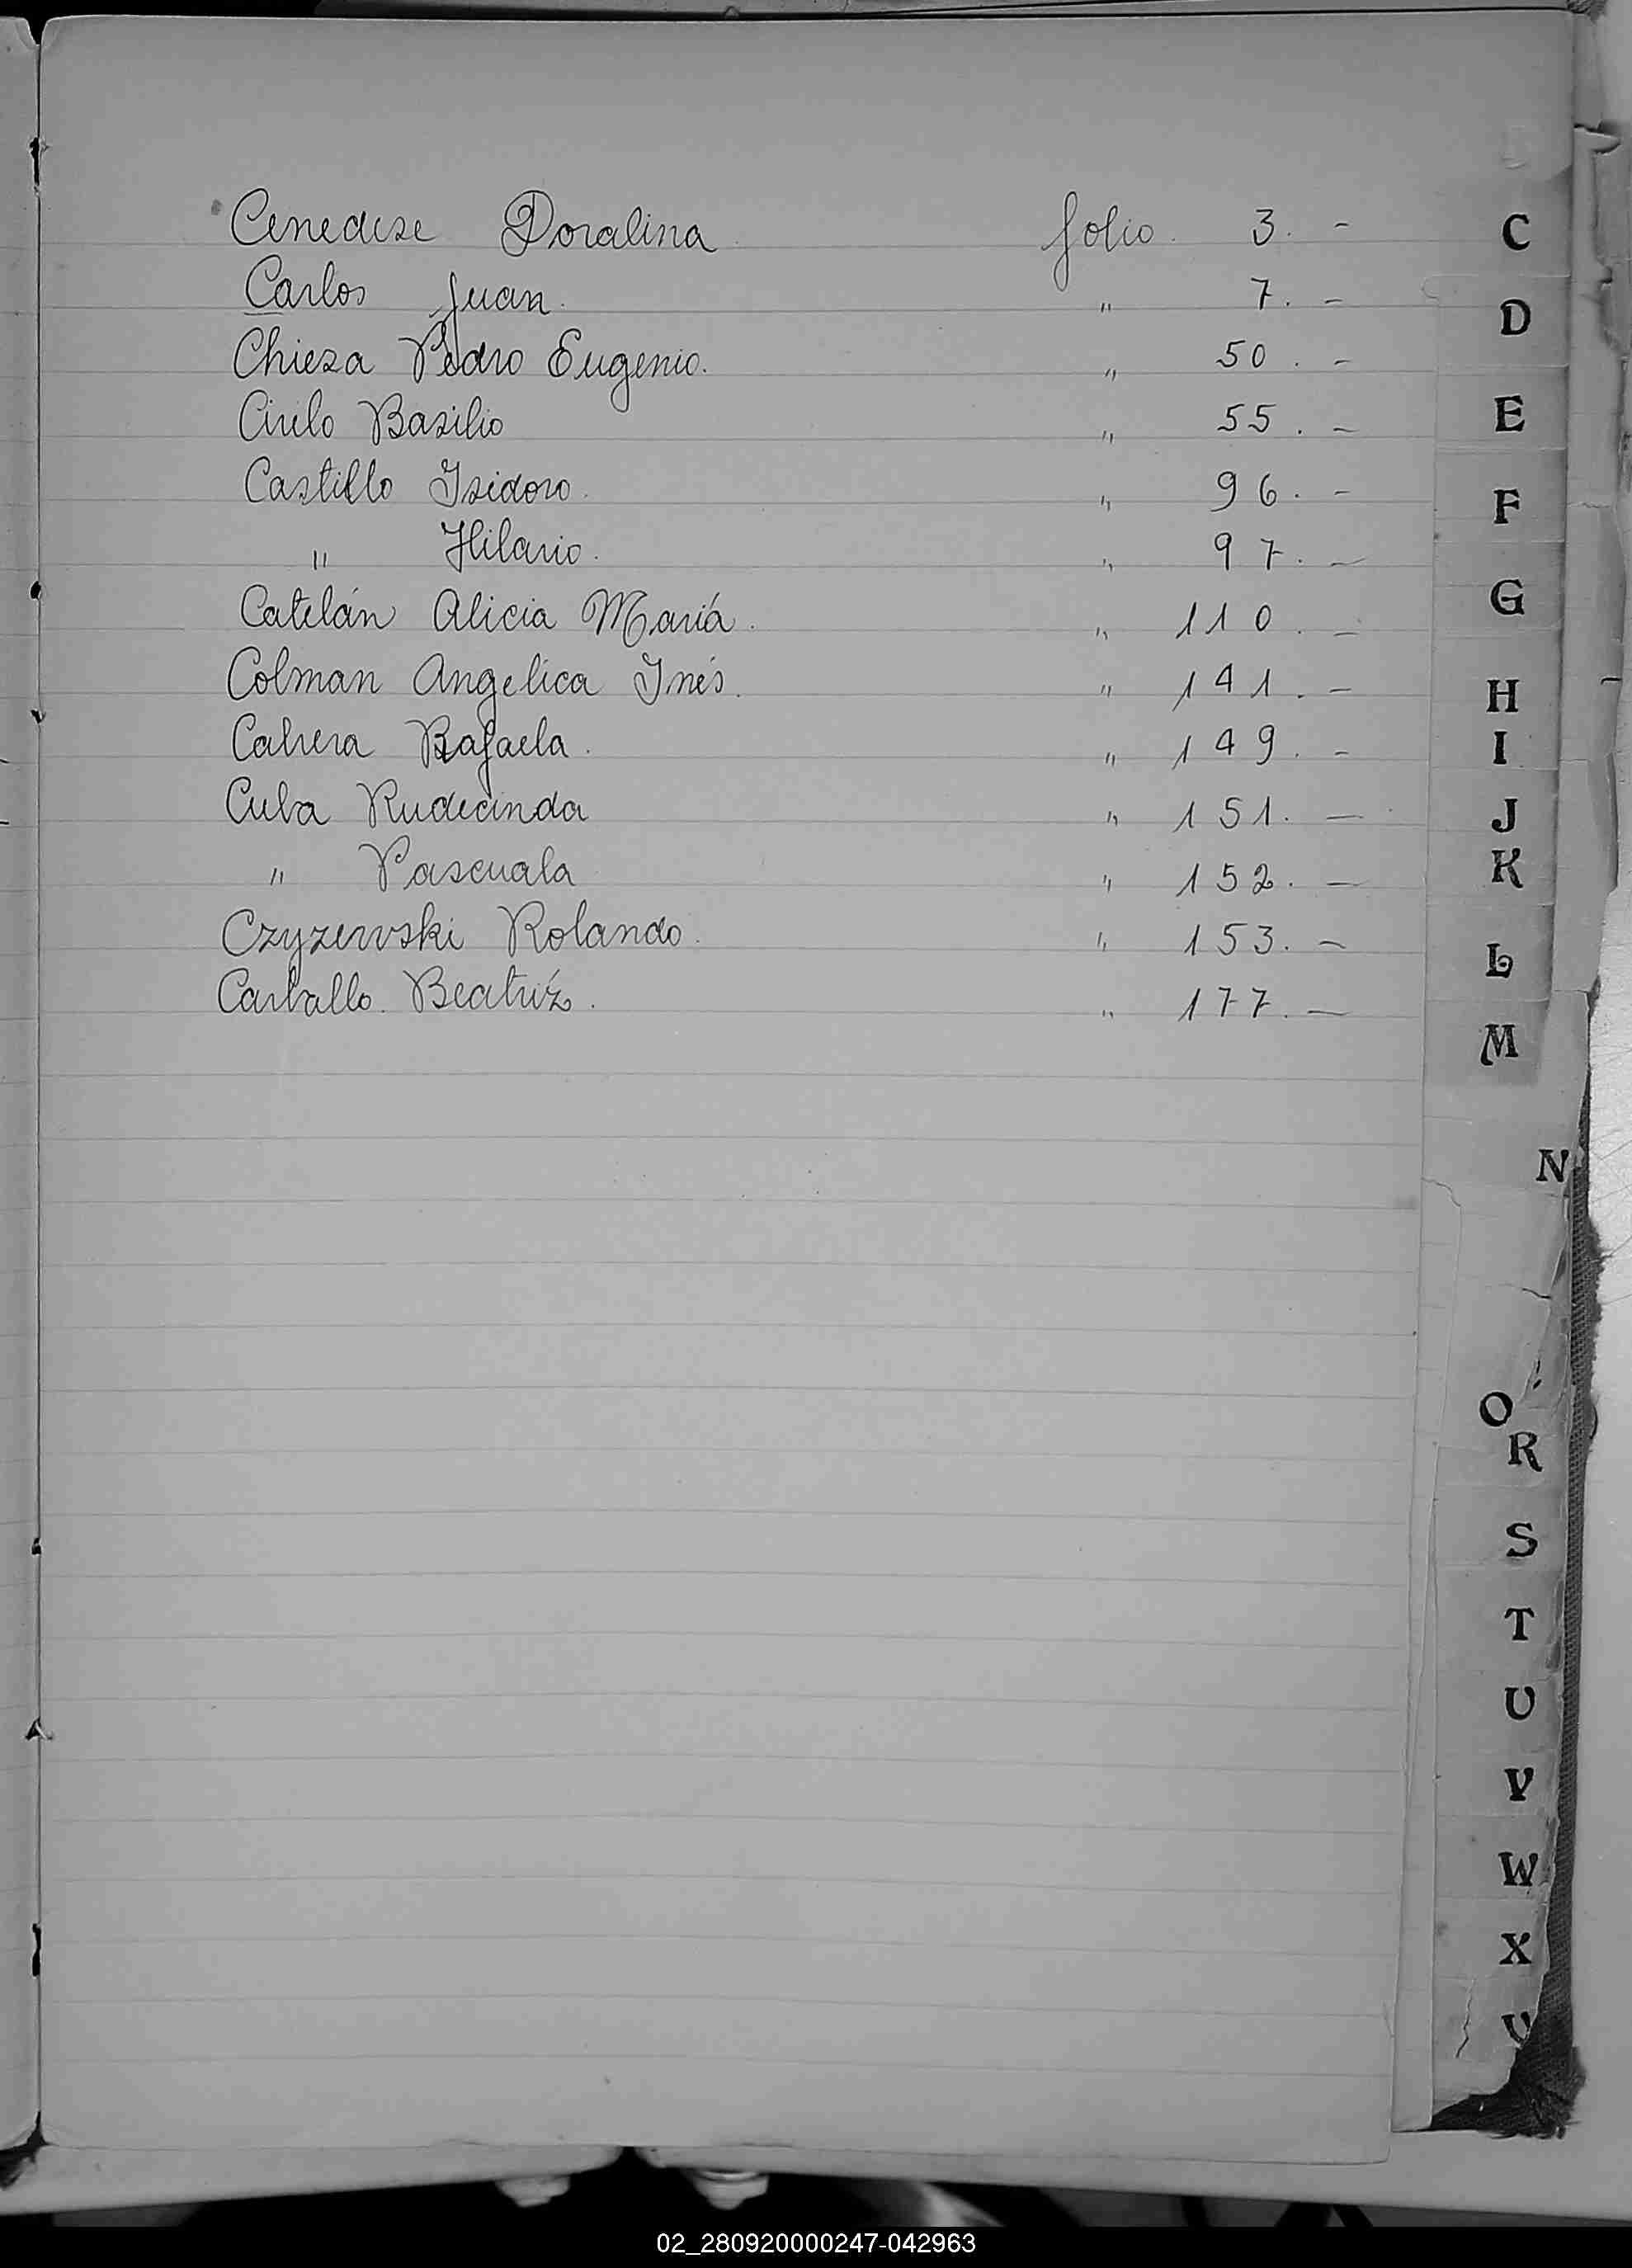 Cenedese Doralina folio. 3. -
Carlos Juan. " 7. -
Chiesa Pedro Eugenio. " 50. -
Cirilo Basilio " 55. -
Castillo Isidoro. " 96. -
" Hilario. " 97. -
Catelán Alicia María. " 110. -
Colman Angelica Inés. " 141. -
Cabrera Rafaela. " 149. -
Cuba Rudecinda " 151. -
" Pascuala " 152. -
Czyzewski Rolando. " 153. -
Carballo. Beatríz. " 177. -
C
D
E
F
G
H
I
J
K
L
M
N
O
R
S
T
U
V
W
X
02_280920000247-042963